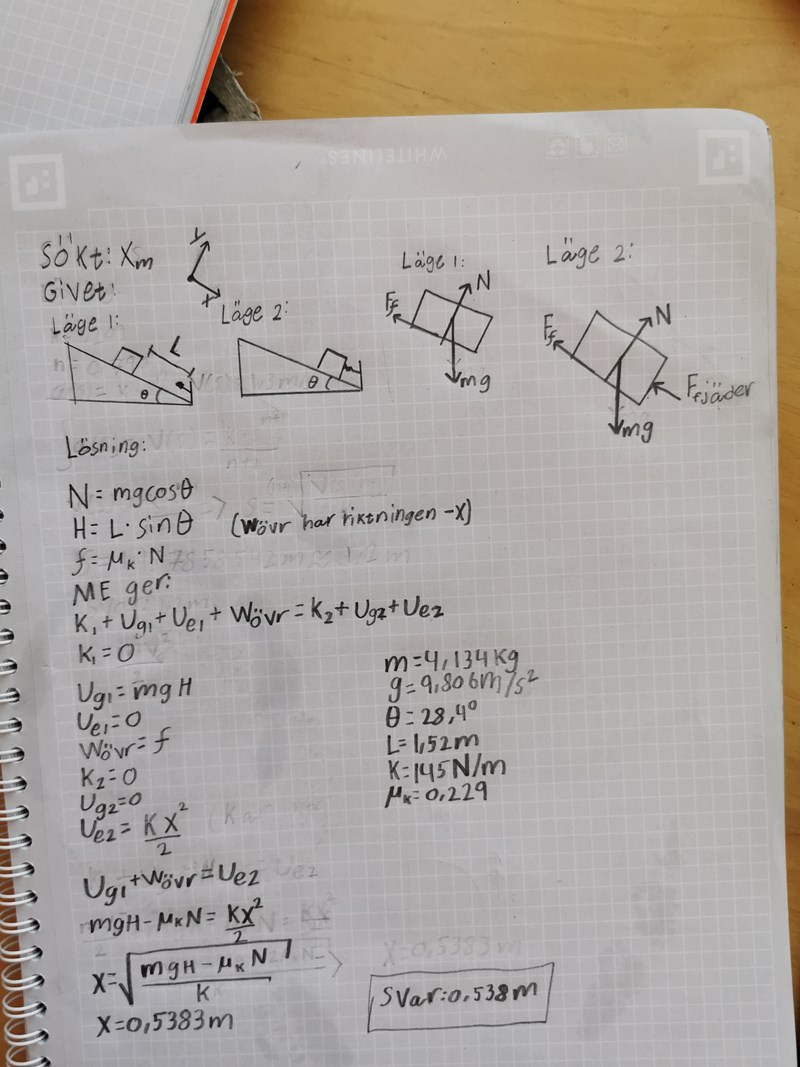 WHITELINES
Sökt: Xm
Givet:
Läge 1:
Läge 2:
Y
X
L
θ
θ
Läge 1:
N
Ff
mg
Läge 2:
N
Ff
Ffjäder
mg
Lösning:
N = mgcosθ
H = L · sinθ (Wövr har riktningen -x)
f = μk · N
ME ger:
K1 + Ug1 + Ue1 + Wövr = K2 + Ug2 + Ue2
K1 = 0
Ug1 = mgH
Ue1 = 0
Wövr = f
K2 = 0
Ug2 = 0
Ue2 = KX²/2
m = 4,134 Kg
g = 9,806 m/s²
θ = 28,4°
L = 1,52 m
K = 145 N/m
μk = 0,229
Ug1 + Wövr = Ue2
mgH - μkN = KX²/2
X = √((mgH - μkN)/K)
X = 0,5383 m
Svar: 0,538 m